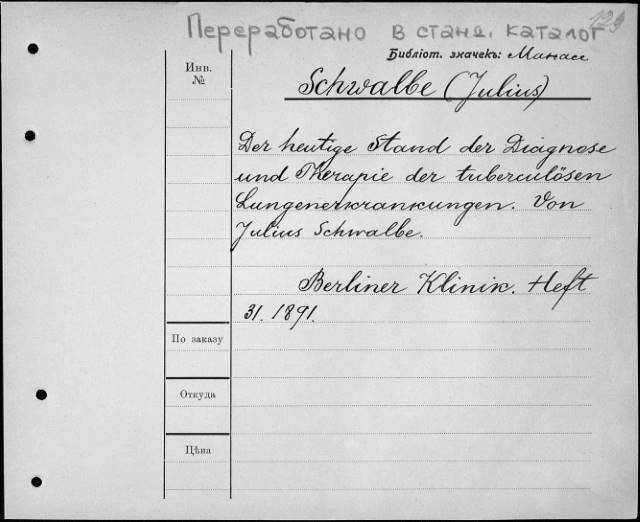 Переработано в станд. каталог
129
Библіот. значекъ: Манасс
Инв.
№
Schwalbe (Julius)
Der heutige Stand der Diagnose
und Therapie der tuberculösen
Lungenerkrankungen. Von
Julius Schwalbe.
Berliner Klinik. Heft
31. 1891.
По заказу
Откуда
Цѣна